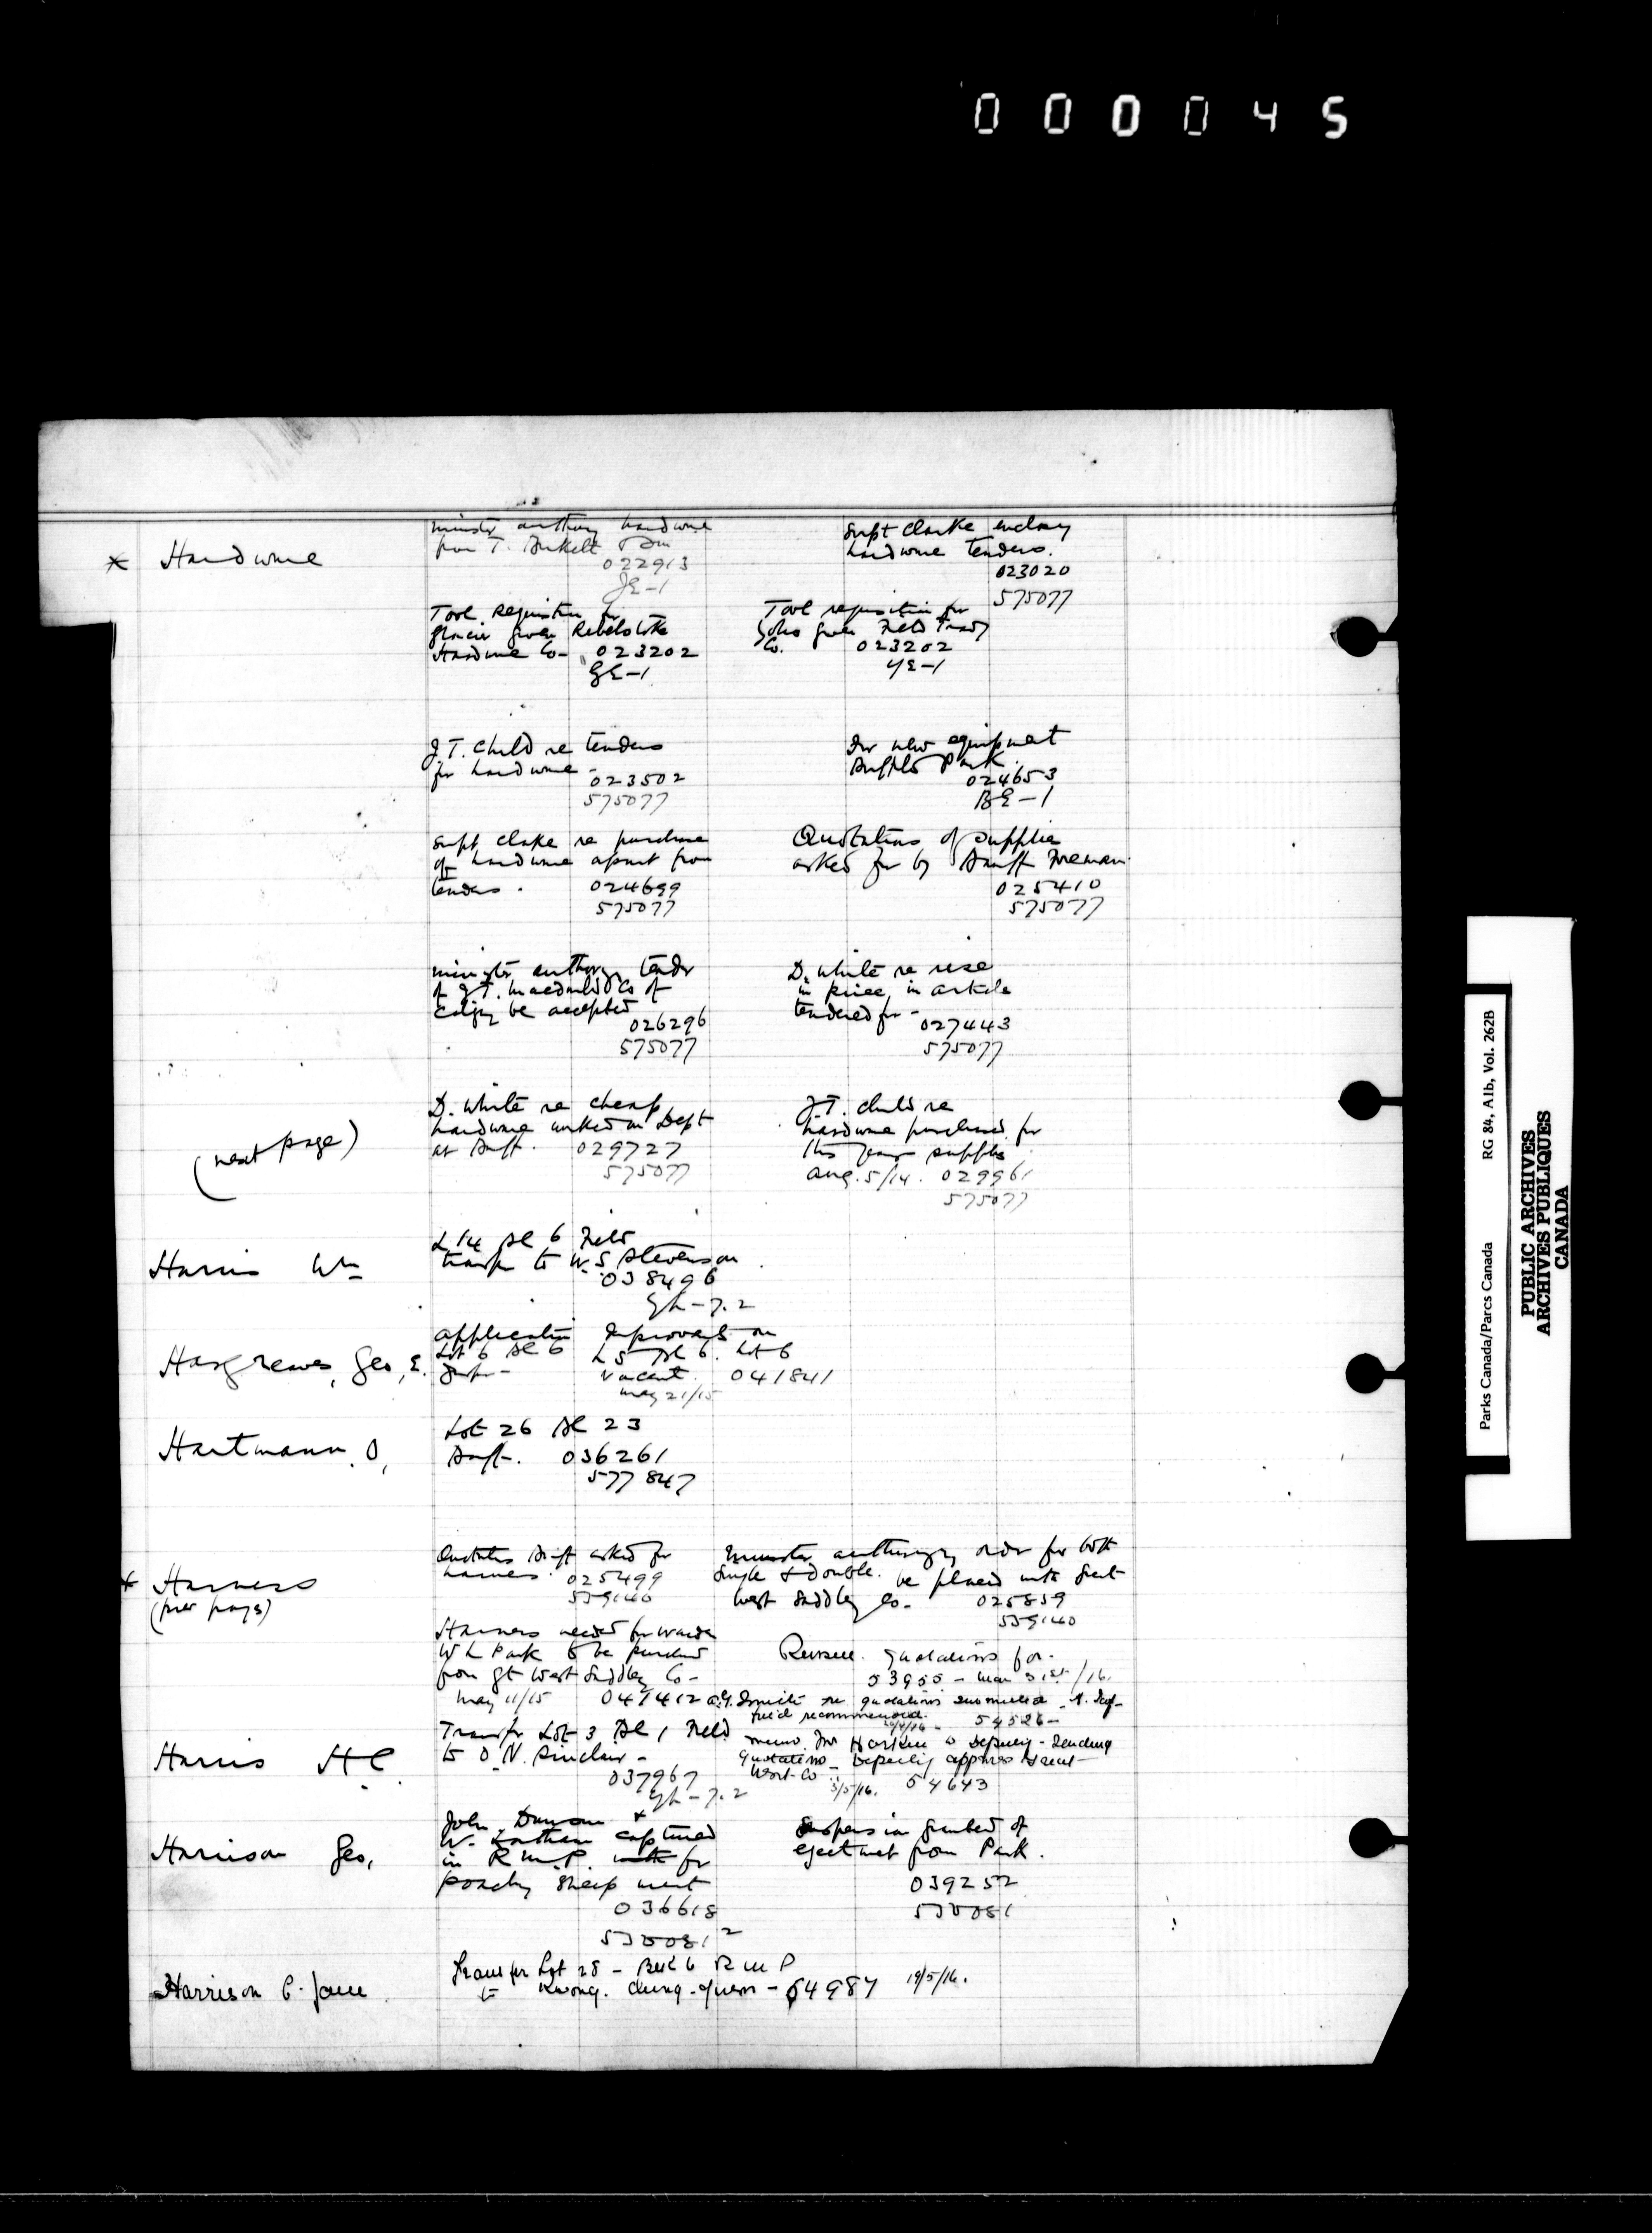 000045
* Hardware
minister authorizing hardware
from T. Birkett & Son
022913
GE-1
Supt Clarke enclosing
hardware tenders.
023020
575077
Tool Requisition for
Glacier given Revelstoke
Hardware Co- 023202
GE-1
Tool requisition for
Yoho given Field Trading
Co. 023202
YE-1
J.T. Child re tenders
for hardware -
023502
575077
For new equipment
Buffalo Park.
024653
BE-1
Supt Clarke re purchase
of hardware apart from
tenders. 024699
575077
Quotations of supplies
asked for by Banff Foreman
025410
575077
minister authorizing tender
of J.T. Macdonald Co of
Calgary be accepted
026296
575077
D. White re rise
in price in article
tendered for -
027443
575077
(next page)
D. White re cheap
hardware worked on Dept
at Banff. 029727
575077
J.T. Child re
hardware purchased for
this years supplies
Aug. 5/14. 029961
575077
Harris Wm
L 14 Bl 6 Field
transfer to W.S. Stevenson
038496
Yh-7.2
Hargreaves, Geo, E.
application
Lot 6 Bl 6
Improvements on
L 5 Bl 6. Lot 6
vacant. 041841
May 21/15
Hartmann O,
Lot 26 Bl 23
Banff. 036261
577847
* Harness
(prev page)
Quotations Banff asked for
harness. 025499
559140
Minister authorizing order for both
single & double. be placed with Great
West Saddlery Co- 025859
559140
Harness needed for warden
W L Park to be purchased
from Gt West Saddlery Co-
May 11/15 041412
quotations for.
53955 - Mar 31st/16.
re quotations submitted
recommended. 54526-
Harris H C.
Transfer Lot 3 Bl 1 Field
to O.N. Sinclair -
037967
Yh-7.2
memo. for Harkin to Deputy - sending
quotations - Deputy approves Great
West Co 3/5/16. 54643
Harrison Geo,
John Duncan &
W. captured
in R.M.P. with for
poaching sheep meat
036618
530081 2
Suspension granted of
ejectment from Park.
039252
530081
Harrison C. Jane
Transfer Lot 28 - Blk 6 R M P
to Kwong. Chung - 54987 19/5/16.
Parks Canada/Parcs Canada RG 84, A1b, Vol. 262B
PUBLIC ARCHIVES
ARCHIVES PUBLIQUES
CANADA